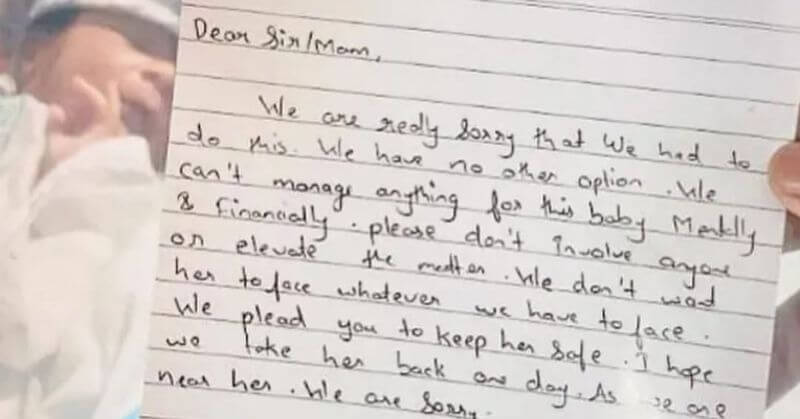 Dear Sir/Mam,
We are redly Sorry that We had to
do this. We have no other option. We
can't manage anything for this baby Mentlly
& financially. please don't involve anyone
or elevate the matter. We don't wad
her to face whatever we have to face.
We plead you to keep her safe. I hope
we take her back one day. As we are
near her. We are Sorry.